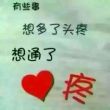 有些事
想多了头疼
想通了
疼